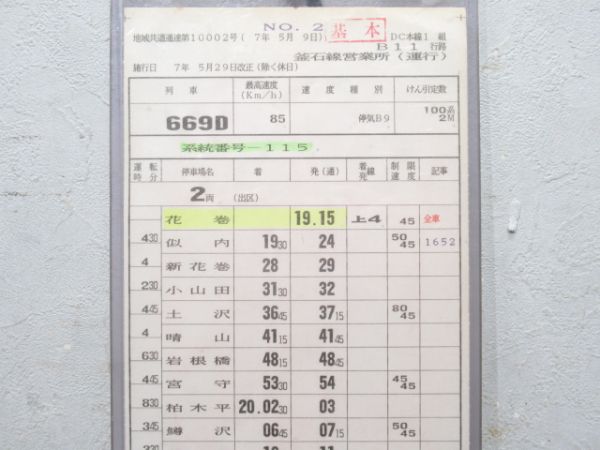 NO. 2
地域共運運達第10002号(7年 5月 9日) 基本 DC本線1 組
B11 行路
釜石線営業所(運行)
施行日 7年 5月29日改正(除く休日)
列車 最高速度(Km/h) 速度種別 けん引定数
669D 85 停気B9 100系 2M
系統番号-115
運転時分 停車場名 着 発(通) 着発線 制限速度 記事
2両 (出区)
花巻 19.15 上4 45 全車
430 似内 1930 24 50 45 1652
4 新花巻 28 29
230 小山田 3130 32
445 土沢 3645 3715 80 45
4 晴山 4115 4145
630 岩根橋 4815 4845
445 宮守 5330 54 45 45
830 柏木平 20.0230 03
345 鱒沢 0645 0715 50 45